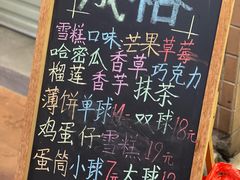 雪糕口味芒果草莓
哈密瓜香草巧克力
榴莲香芋抹茶
薄饼单球 双球18元
鸡蛋仔雪糕19元
蛋筒小球7元大球